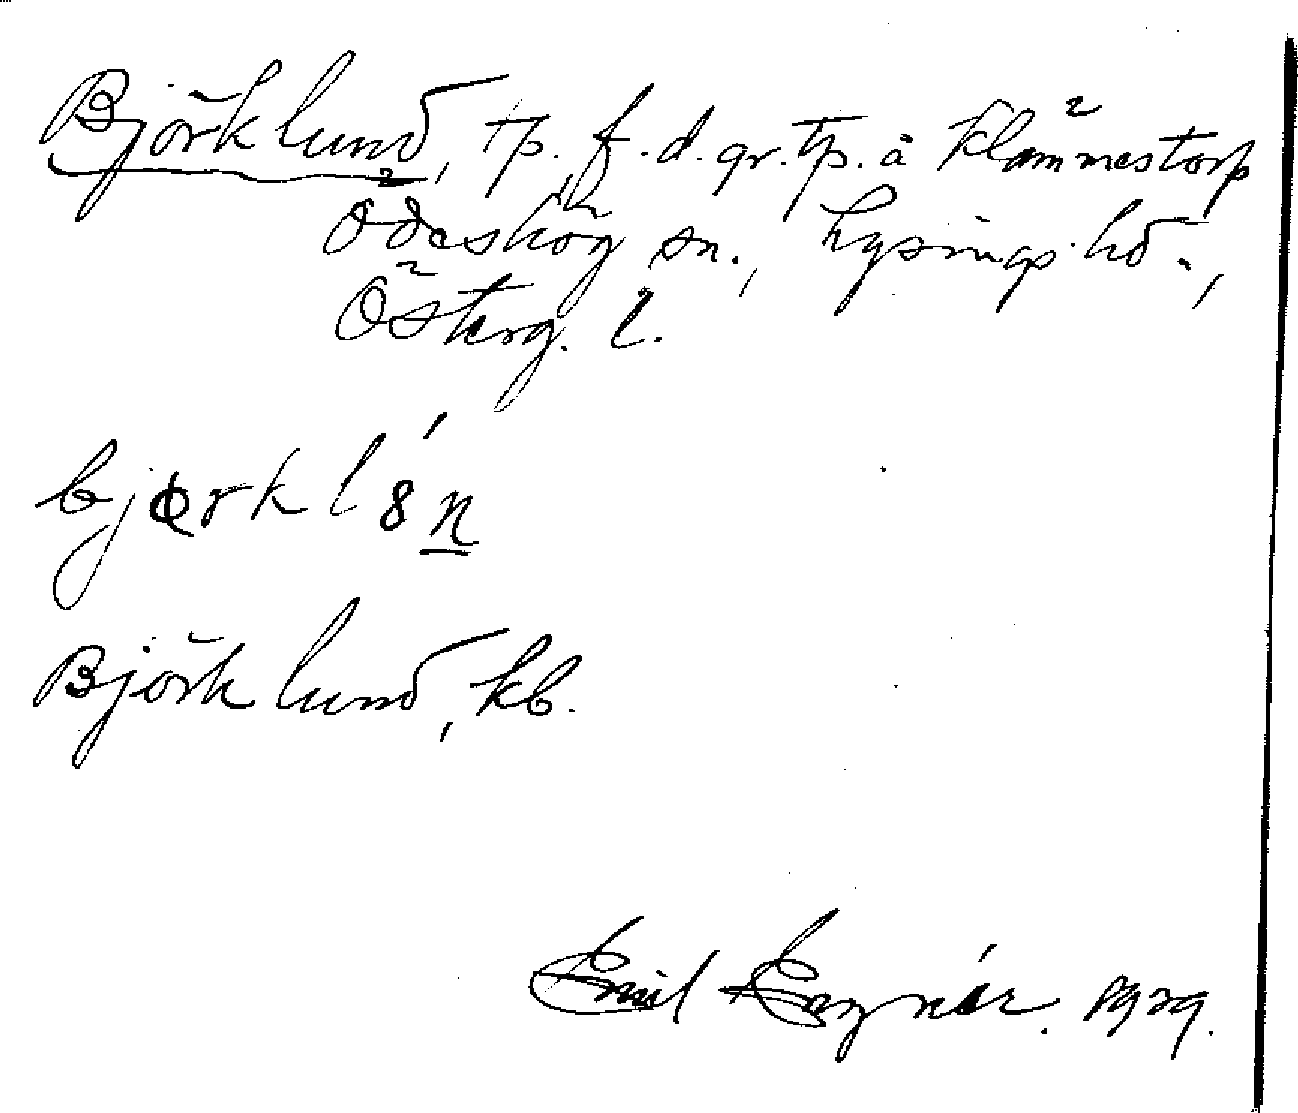 Björklund, tp. f.d. gr.tp. å Klämmestorp
Ödeshög sn., Lysings hd.,
Österg. l.
Björklund, kb.
Emil 1929.